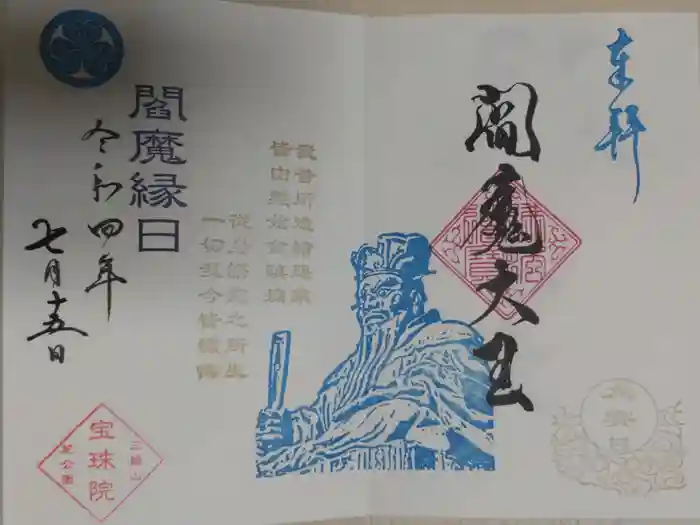 奉拝
閻魔大王
我昔所造諸悪業
皆由無始貪瞋痴
従身語意之所生
一切我今皆懺悔
閻魔縁日
令和四年
七月十五日
三縁山
宝珠院
芝公園